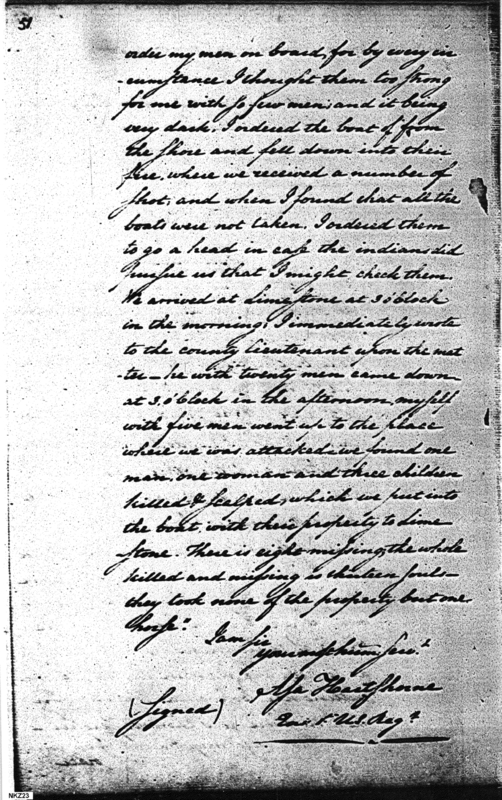 51
order my men on board, for by every cir
-cumstance I thought them too strong
for me with so few men; and it being
very dark, I ordered the boat off from
the shore and fell down into their
fire, where we received a number of
shot; and when I found that all the
boats were not taken, I ordered them
to go a head in case the indians did
pursue us that I might check them.
We arrived at Lime stone at 3 o'Clock
in the morning; I immediately wrote
to the county lieutenant upon the mat
-ter — he with twenty men came down
at 3, o'Clock in the afternoon, myself
with five men went up to the place
where we was attacked; we found one
man, one woman and three children
killed & scelped, which we put into
the boat, with their property to Lime
stone. There is eight missing, the whole
killed and missing is thirteen souls—
they took none of the property but one
horse."
I am Sir
your mo hum Serv.t
Asa Hartshorne
(Signed)
Ens. U.S. Reg.t
NKZ23